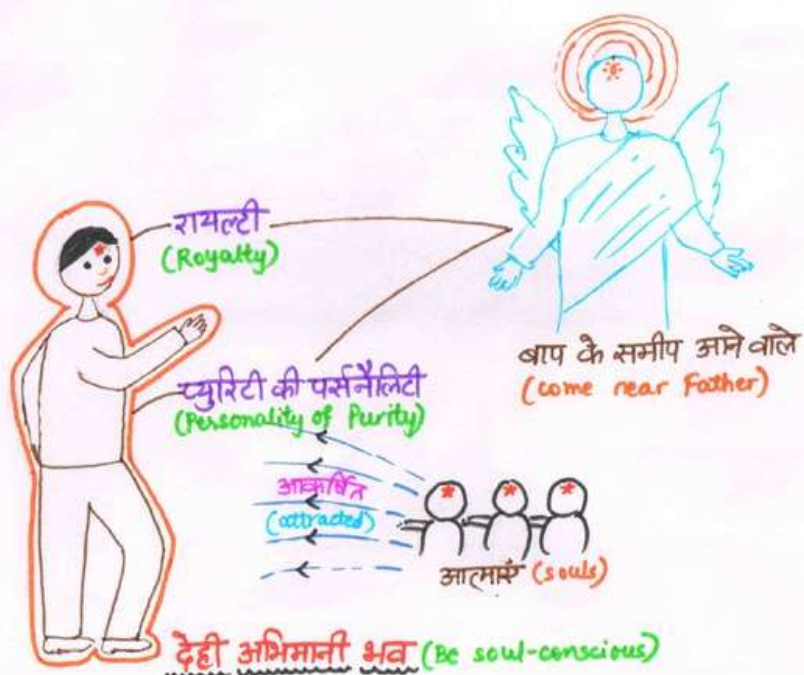 रायल्टी
(Royalty)
बाप के समीप आने वाले
(come near Father)
प्युरिटी की पर्सनैलिटी
(Personality of Purity)
आकर्षित
(attracted)
आत्माएँ (souls)
देही अभिमानी भव (Be soul-conscious)